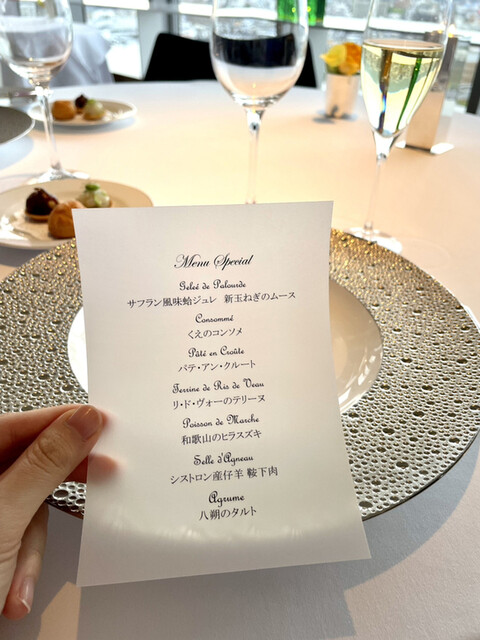 Menu Special
Geleé de Palourde
サフラン風味蛤ジュレ 新玉ねぎのムース
Consommé
くえのコンソメ
Pâté en Croûte
パテ・アン・クルート
Terrine de Ris de Veau
リ・ド・ヴォーのテリーヌ
Poisson de Marche
和歌山のヒラスズキ
Selle d'Agneau
シストロン産仔羊 鞍下肉
Agrume
八朔のタルト